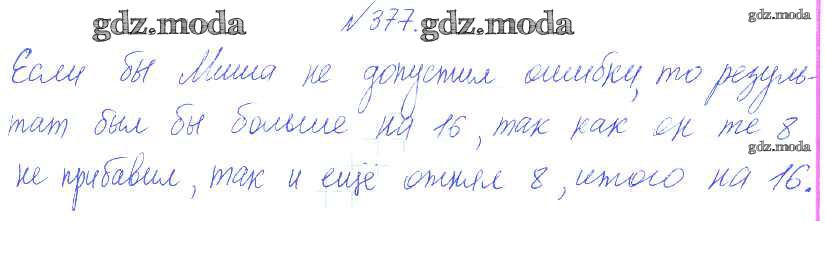 gdz.moda №377. gdz.moda gdz.moda
Если бы Миша не допустил ошибку, то резуль-
тат был бы больше на 16, так как он те 8
gdz.moda
не прибавил, так и ещё отнял 8, итого на 16.